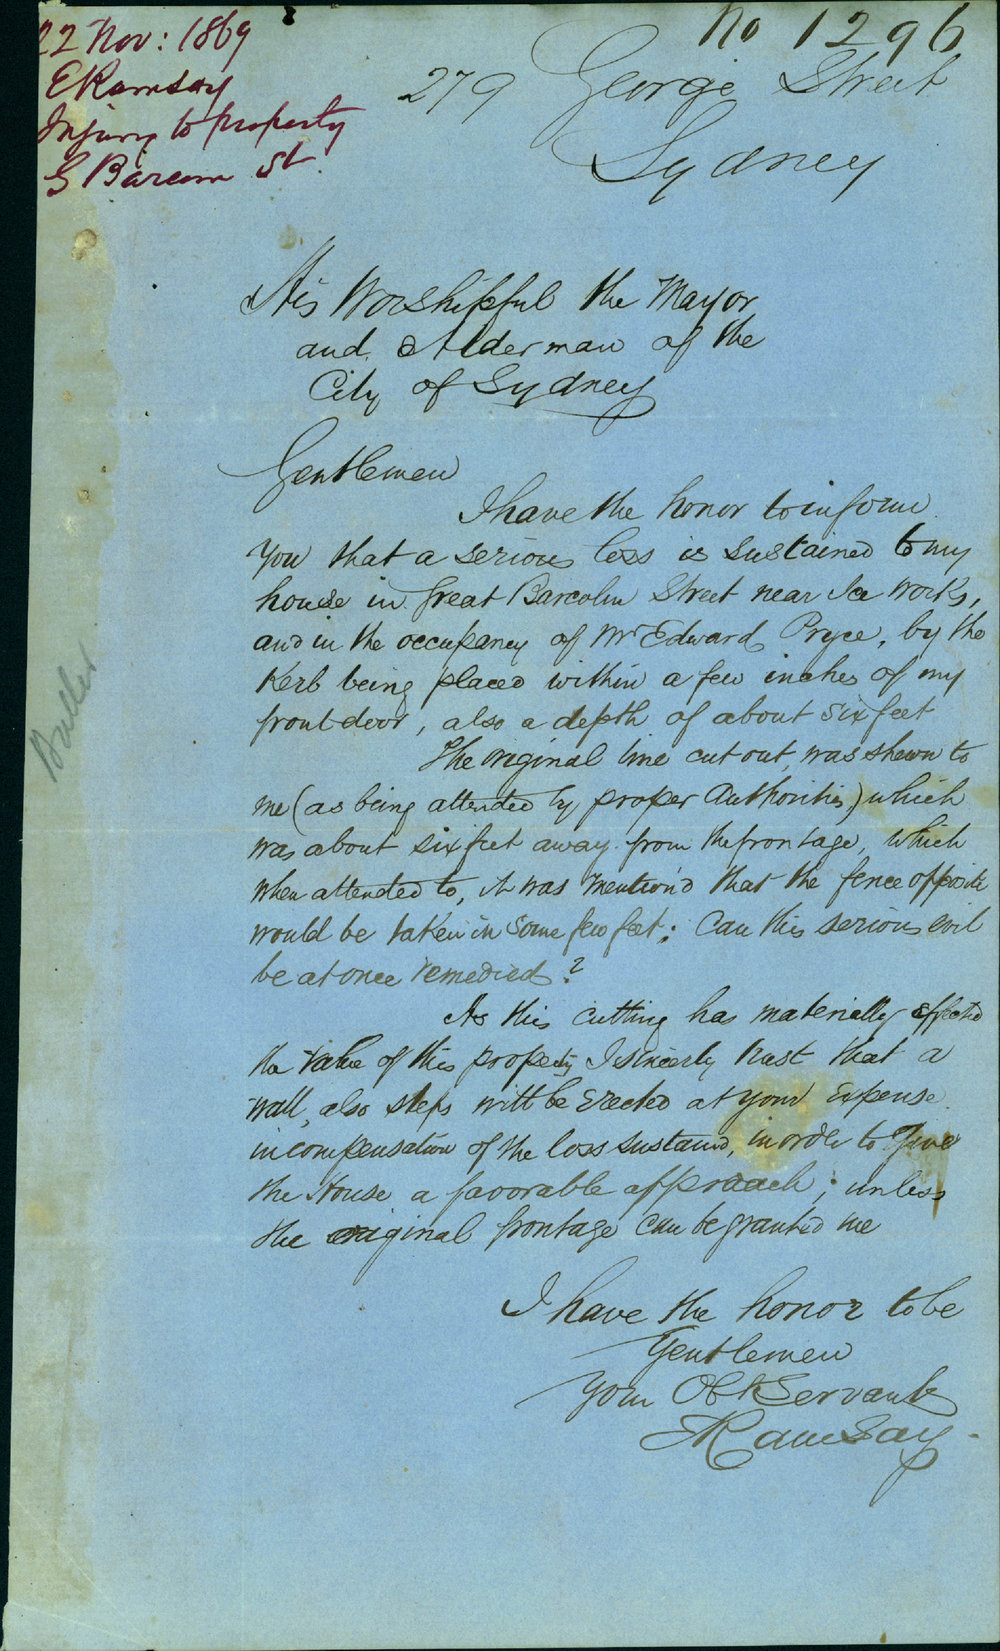 22 Nov: 1869
E Ramsay
Injury to property
G Barcom St
No 1296
279 George Street
Sydney
His Worshipful the Mayor
and Alderman of the
City of Sydney
Gentlemen
I have the honor to inform
You that a serious loss is sustained to my
house in Great Barcolm Street near Ice Works,
and in the occupancy of Mr Edward Pryce, by the
Kerb being placed within a few inches of my
front door, also a depth of about six feet
The original line cut out, was shewn to
me (as being attended by proper Authorities) which
was about six feet away from the frontage, which
when attended to, it was mention'd that the fence opposite
would be taken in some few feet; Can this serious evil
be at once remedied?
As this cutting has materially effected
the value of this property I sincerely trust that a
wall, also steps will be erected at your expense
in compensation of the loss sustained, in order to give
the House a favorable approach; unless
the original frontage can be granted me
I have the honor to be
Gentlemen
Your Obt Servant
E Ramsay